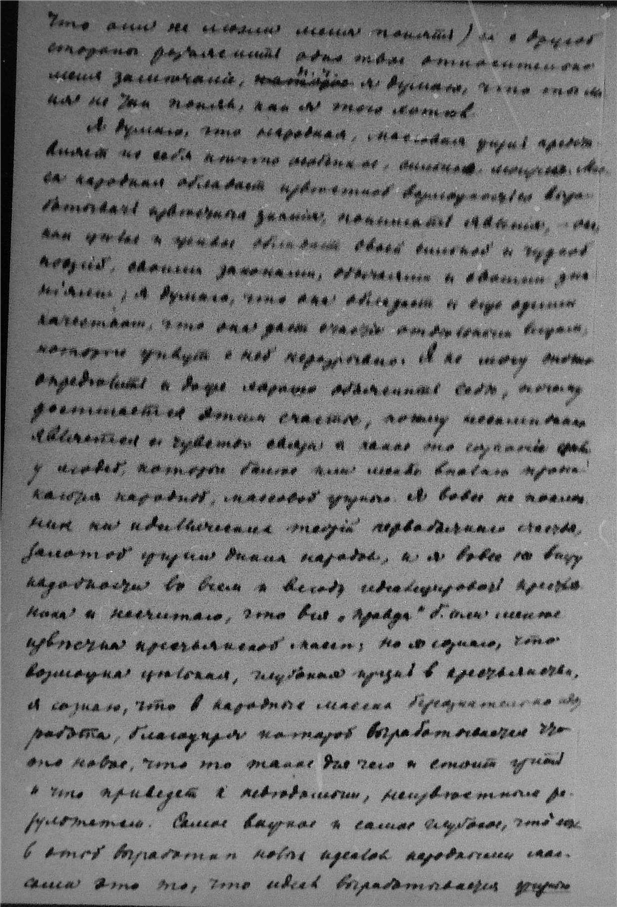 что они не могли меня понять) и с другой
стороны разъяснить одно твое относительно
меня замечание, я думаю, что ты ме
ня не так понял, как я того хотел.
Я думаю, что народная, массовая жизнь предста
вляет из себя нечто особенное, сильное, мощное. Мас
са народная обладает известной возможностью выра
батывать известныя знания, понимать явления, она,
как целое и живое обладает своей сильной и чудной
поэзией, своими законами, обычаями и своими зна
ниями; я думаю, что она обладает и еще одним
качеством, что она дает счастье отдельным лицам,
которые живут с ней неразрывно. Я не могу точно
определить и даже хорошо объяснить себе, почему
достигается этим счастье, почему несомненно
является и чувство связи и какое то сознание
у людей, которые более или менее вполне прони
каются народной, массовой жизнью. Я вовсе не поклон
ник идиллических теорий первобытнаго счастья,
золотой жизни диких народов, и я вовсе не вижу
надобности во всем и всюду идеализировать крестья
нина и несчитаю, что вся „правда“ более или менее
известна крестьянской массе; но я сознаю, что
возможна цельная, глубокая жизнь в крестьянстве,
я сознаю, что в народных массах безсознательно идет
работа, благодаря которой вырабатывается что
то новое, что то такое для чего и стоит жить
и что приведет к неведомым, неизвестным ре-
зультатам. Самое важное и самое глубокое, что есть
в этой выработке новых идеалов народными мас-
сами это то, что идеал вырабатывается жизнью